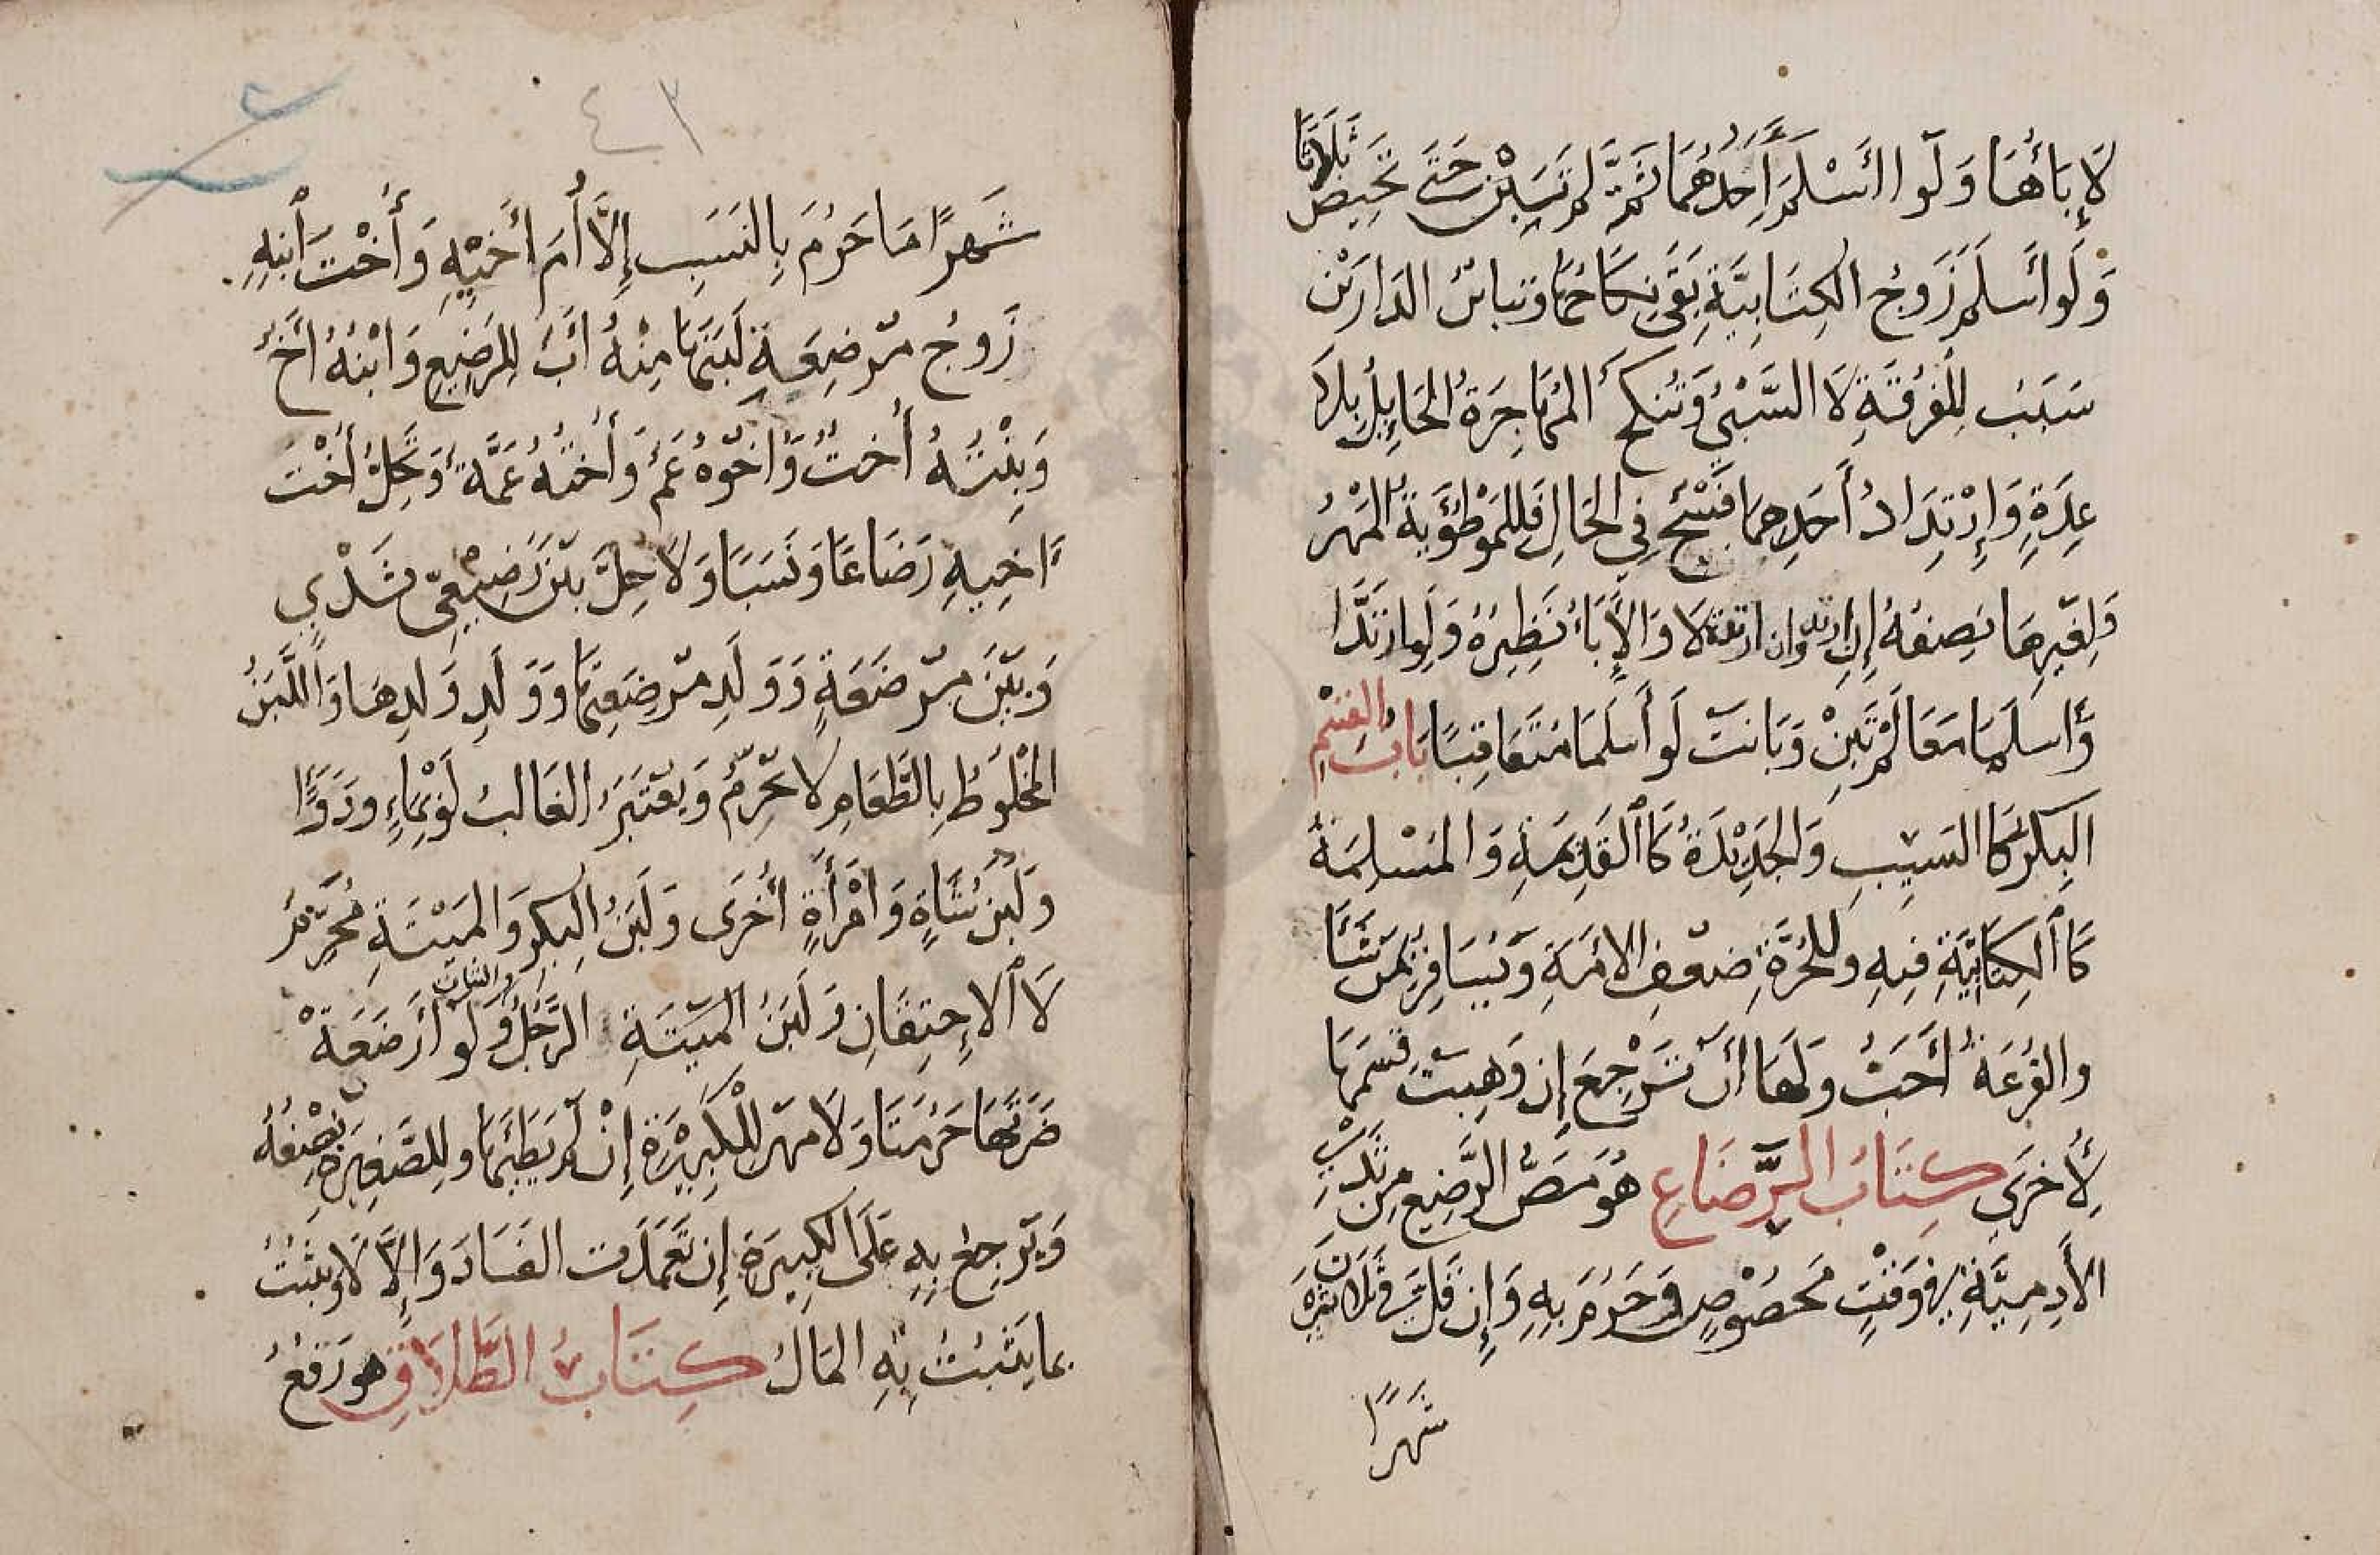 لَا إِبَاؤُهَا وَلَوْ اَسْلَمَ أَحَدُهُمَا ثَمَّةَ لَمْ تَبِنْ حَتَّى تَحِيضَ ثَلَاثًا
وَلَو أَسلَمَ زَوجُ الكِتَابِيَّةِ بَقَى نِكَاحُهُمَا وَتبايُنُ الدَارَيْن
سَبَبُ لِلفُرْقَةِ لَا السَّبْيُ وَتُنكَحُ المُهَاجِرَةُ الحَايِلُ بِلَا
عِدَةٍ وَإِرْتِدَادُ أَحَدِهِمَا فَسْخٌ فِي الحَالِ فَلِلمَوْطُؤَيةُ المَهْرُ
وَلِغَيرِهَا نِصفُهُ إِن ارتد وان ارتدت لَا وَالإِبَاءُ نَظِيرُهُ وَلَوِ ارْتَدَّا
وَاسلَمَا مَعَا لَمْ تَبِنْ وَبَانَتْ لَو أَسلَمَا مُتَعَاقِبًا بَابُ القِسْمِ
البِكرُ كَا السَيِبِ وَالجَدِيْدَةُ كَا القَدِيمَةِ وَالمُسْلِمَةُ
كَا الكِتَابِيَّةِ فِيهِ وللحُرَّةِ ضِعْفِ الامَةِ وَيُسَافِرُ بِمَنْ شَاَ
والقُرعَةُ أَحَبُّ وَلَهَا أَنْ تَرْجِعَ إِن وَهِبَتْ قِسمَهَا
لِأُخرَى كِتَابُ الرَّضَاعِ هُوَ مَصُّ الرَّضِيعِ مِن ثَدْيِ
الأَدِمِيَّةِ فِي وَقْتٍ مَخصُوْصٍ وَحَرُمَ بِهِ وَإِن قَلَّ فِي ثَلَاثِينَ
شَهرًا
٤٢
شَهرًا مَا حَرُمَ بِالنَسَبِ إِلَّا أُمَ أَخِيْهِ وَأُخْتَ ابْنِهِ
زَوجُ مُرضِعَةٍ لَبَنُهَا مِنْهُ أَبٌ لِلرَضِيعِ وَابْنُهُ أَخٌ
وَبِنْتُهُ أُختٌ وَاخُوهُ عَمٌ وَأُختُهُ عَمَّةٌ وَتَحِلُّ أُخْتَ
اَخِيهِ رَضَاعًا وَنَسَبًا وَلَا حِلَّ بَيْنَ رَضِيْعَي ثَدْيٍ
وَبَيْنَ مُرضَعَةٍ وَوَلَدِ مُرضِعَتِهَا وَوَلَدِ وَلدِهَا وَاللَّبَنُ
المَخْلُوطُ بِالطَّعَامِ لا يُحَرِّمُ وَيُعْتَبَرُ الغَالبُ لَوْ بِمَاءٍ ودَوَاءٍ
ولَبَنِ شَاةٍ وَامْرَأَةٍ أُخرَى وَلَبَنُ البِكرِ وَالمَيْتَةِ مُحَرِّمٌ
لَا الاحِتِقَانِ وَلَبَنُ المَيْتَةِ الرَّجُلُ والشاة وَلَو أَرضَعَةْ
ضَرَتُهَا حَرُمَتَا وَلَا مَهرَ لِلْكَبِيْرَةِ إِنْ لَمْ يَطَئهَا ولِلصَّغِيرَةِ نِصْفُهُ
وَيَرجِعُ بِهِ عَلَى الكَبِيرَةِ إِن تَعَمَدَت الفَسَادَ وَإِلَّا لَا وَيثبُتُ
بِما يَثبُتُ بِهِ المَالُ كِتَابُ الطَّلَاقِ هو رَفْعُ